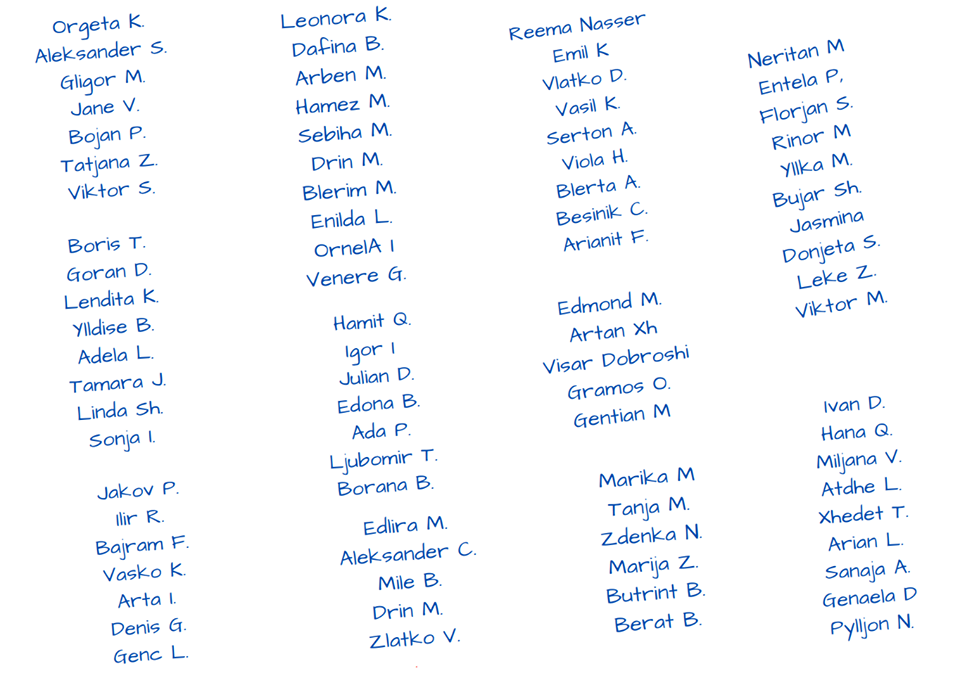 Orgeta K.
Aleksander S.
Gligor M.
Jane V.
Bojan P.
Tatjana Z.
Viktor S.
Boris T.
Goran D.
Lendita K.
Ylldise B.
Adela L.
Tamara J.
Linda Sh.
Sonja I.
Jakov P.
Ilir R.
Bajram F.
Vasko K.
Arta I.
Denis G.
Genc L.
Leonora K.
Dafina B.
Arben M.
Hamez M.
Sebiha M.
Drin M.
Blerim M.
Enilda L.
OrnelA I
Venere G.
Hamit Q.
Igor I
Julian D.
Edona B.
Ada P.
Ljubomir T.
Borana B.
Edlira M.
Aleksander C.
Mile B.
Drin M.
Zlatko V.
Reema Nasser
Emil K
Vlatko D.
Vasil K.
Serton A.
Viola H.
Blerta A.
Besinik C.
Arianit F.
Edmond M.
Artan Xh
Visar Dobroshi
Gramos O.
Gentian M
Marika M
Tanja M.
Zdenka N.
Marija Z.
Butrint B.
Berat B.
Neritan M
Entela P,
Florjan S.
Rinor M
Yllka M.
Bujar Sh.
Jasmina
Donjeta S.
Leke Z.
Viktor M.
Ivan D.
Hana Q.
Miljana V.
Atdhe L.
Xhedet T.
Arian L.
Sanaja A.
Genaela D
Pylljon N.